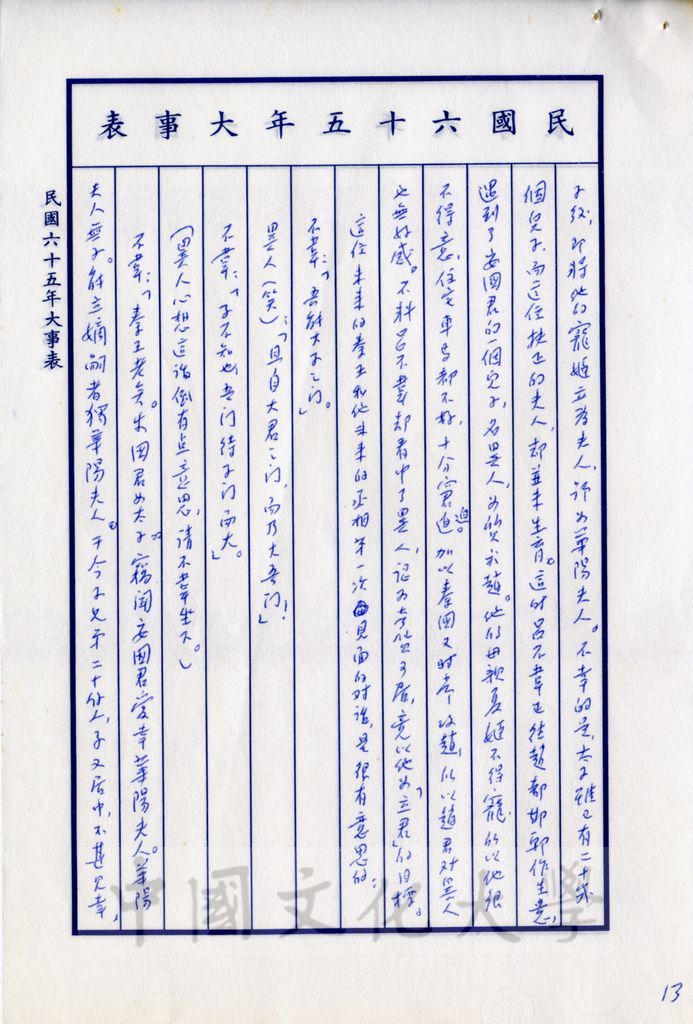 民國六十五年大事表
子後,即將他的寵姬立為夫人,許为華陽夫人。不幸的是,太子雖已有二十幾
個兒子,而這位扶正的夫人,却並未生育。這时呂不韋正往趙都邯鄲作生意,
遇到了安國君的一個兒子,名異人,为質於趙。他的母親夏姬不得寵,所以他很
不得意,住宅車馬都不好,十分窘迫。加以秦國又时常攻趙,所以趙君对異人
也無好感。不料呂不韋却看中了異人,認为奇貨可居,竟以他为「立君」的目標。
這位未來的秦王和他未來的丞相第一次見面的对話,是很有意思的:
不韋:「吾能大子之门。」
異人(笑):「且自大君之门,而乃大吾门!」
不韋:「子不知也,吾门待子门而大。」
(異人心想這話倒有点意思,請不韋坐下。)
不韋:「秦王老矣。安國君为太子。竊闻安國君愛幸華陽夫人。華陽
夫人無子。能立嫡嗣者獨華陽夫人。于今子兄弟二十餘人,子又居中,不甚見幸,
民國六十五年大事表
中國文化大學
13